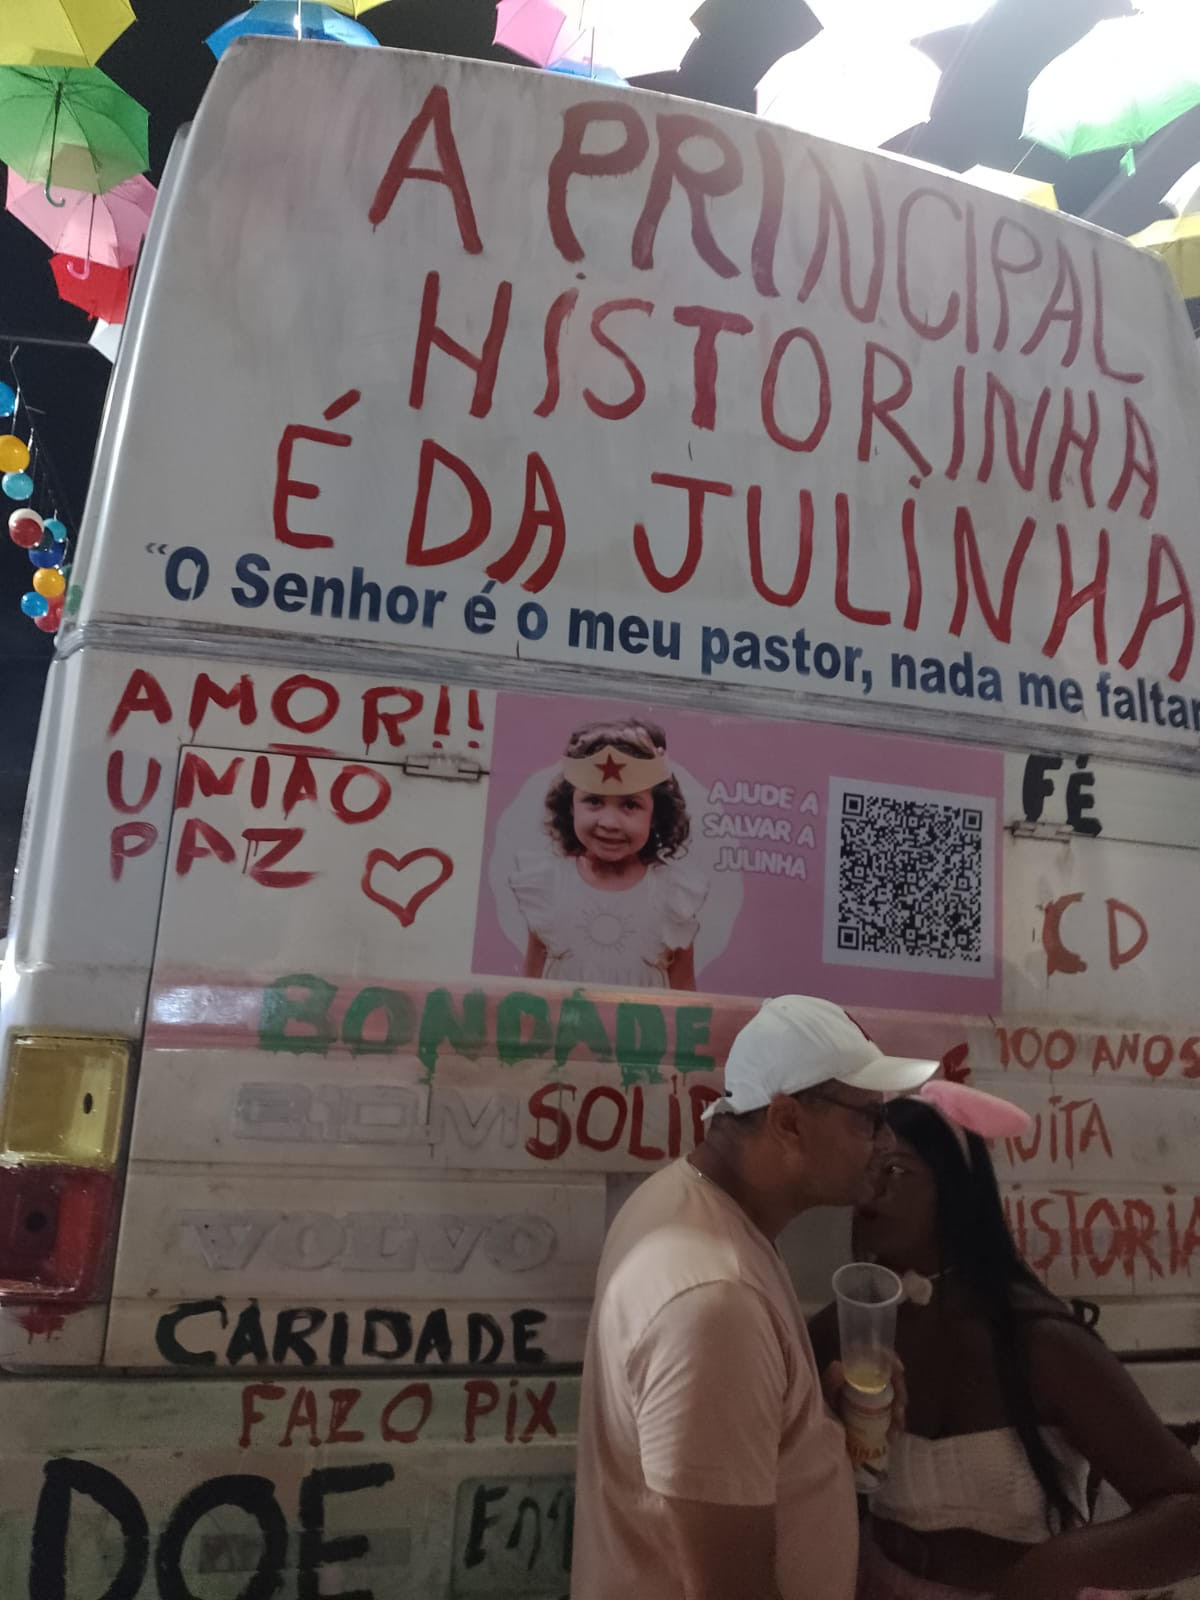 A PRINCIPAL
HISTORINHA
É DA JULINHA
“O Senhor é o meu pastor, nada me faltar
AMOR!!
UNIÃO
PAZ
AJUDE A
SALVAR A
JULINHA
FÉ
CD
BONDADE
100 ANOS
SOLID
VOLVO
HISTORIA
CARIDADE
FAZ O PIX
DOE